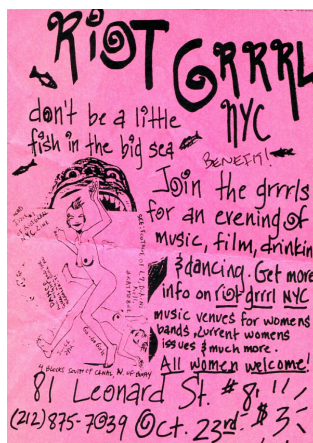 RiOT GRRRL
NYC
don't be a little
fish in the big sea
BENEFIT!
Join the grrrls
for an evening of
music, film, drinkin
& dancing. Get more
info on riot grrrl NYC
music venues for womens
bands, current womens
issues & much more.
All women welcome!
4 BLOCKS SOUTH OF CANAL, N. OF BWAY
81 Leonard St. #8!!
(212) 875-7039 Oct. 23rd - $3